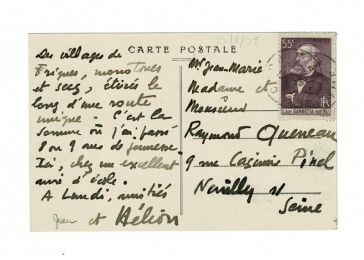 13/8/38
CARTE POSTALE
Des villages de
briques, monotones
et secs, étirés le
long d'une route
unique. C'est la
Somme où j'ai passé
8 ou 9 ans de jeunesse.
Ici, chez un excellent
ami d'école.
A Lundi, amitiés
Jean et Hélion
Mr Jean-Marie
Madame et
Monsieur
Raymond Queneau
9 rue Casimir Pinel
Neuilly s/
Seine
55c
LÉON GAMBETTA
RF